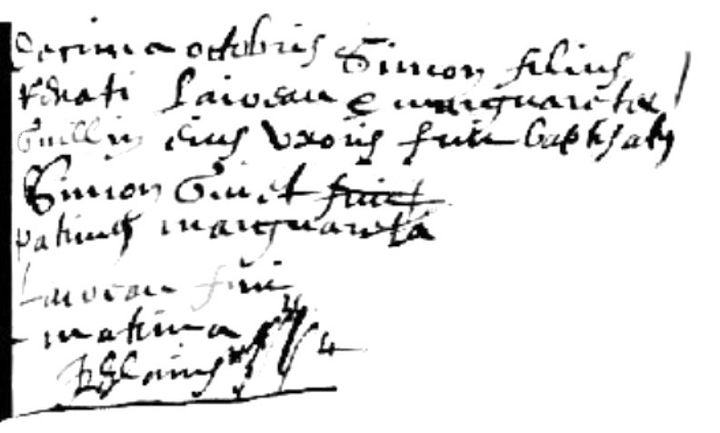 decima octobris Simon filius
Renati Laiveau e marguareta
Guillin eius uxoris fuit baptisatus
Simon Guiet fuit
patinus marguareta
Laiveau fuit
matina